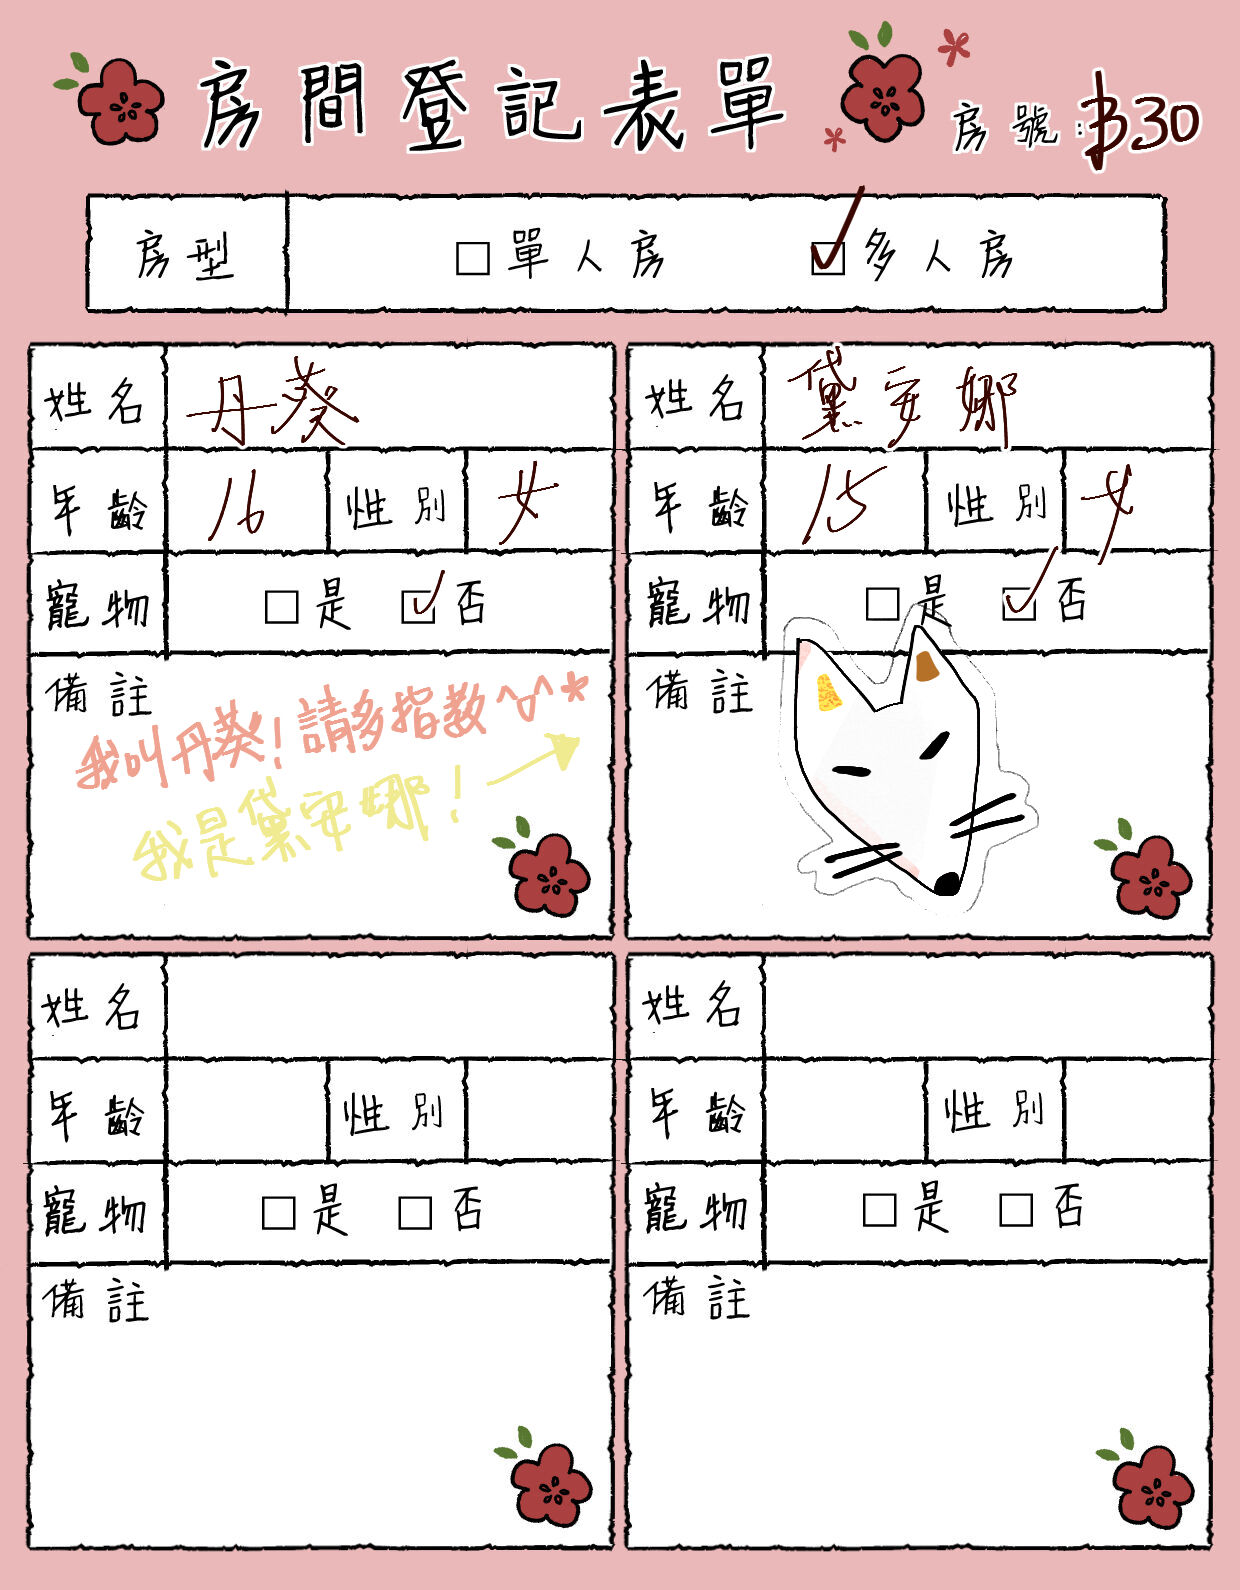 房間登記表單
房號:B30
房型 □單人房 ☑多人房
姓名 丹葵
年齡 16 性別 女
寵物 □是 ☑否
備註
我叫丹葵!請多指教^o^*
我是黛安娜!→
姓名 黛安娜
年齡 15 性別 女
寵物 □是 ☑否
備註
姓名
年齡 性別
寵物 □是 □否
備註
姓名
年齡 性別
寵物 □是 □否
備註